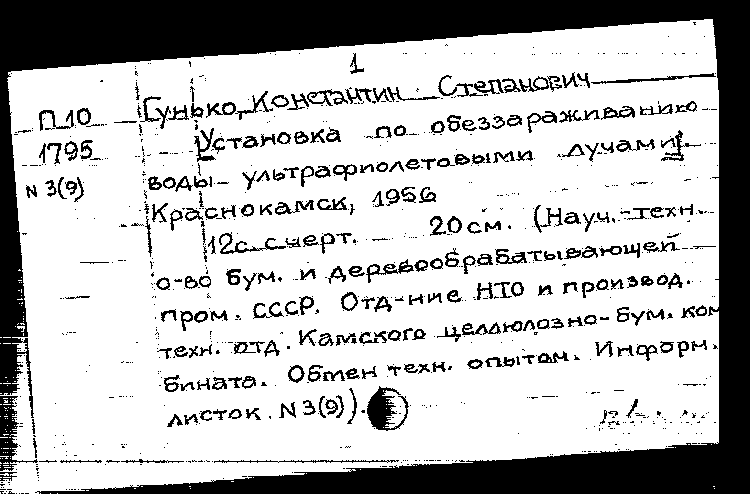 1
П 10 Гунько, Константин Степанович
1795 Установка по обеззараживанию
N 3(9) воды ультрафиолетовыми лучами.
Краснокамск, 1956
12с. с черт. 20 см. (Науч.-техн.
о-во бум. и деревообрабатывающей
пром. СССР. Отд-ние НТО и производ.
техн. отд. Камского целлюлозно-бум. ком
бината. Обмен техн. опытом. Информ.
листок. N 3(9)).